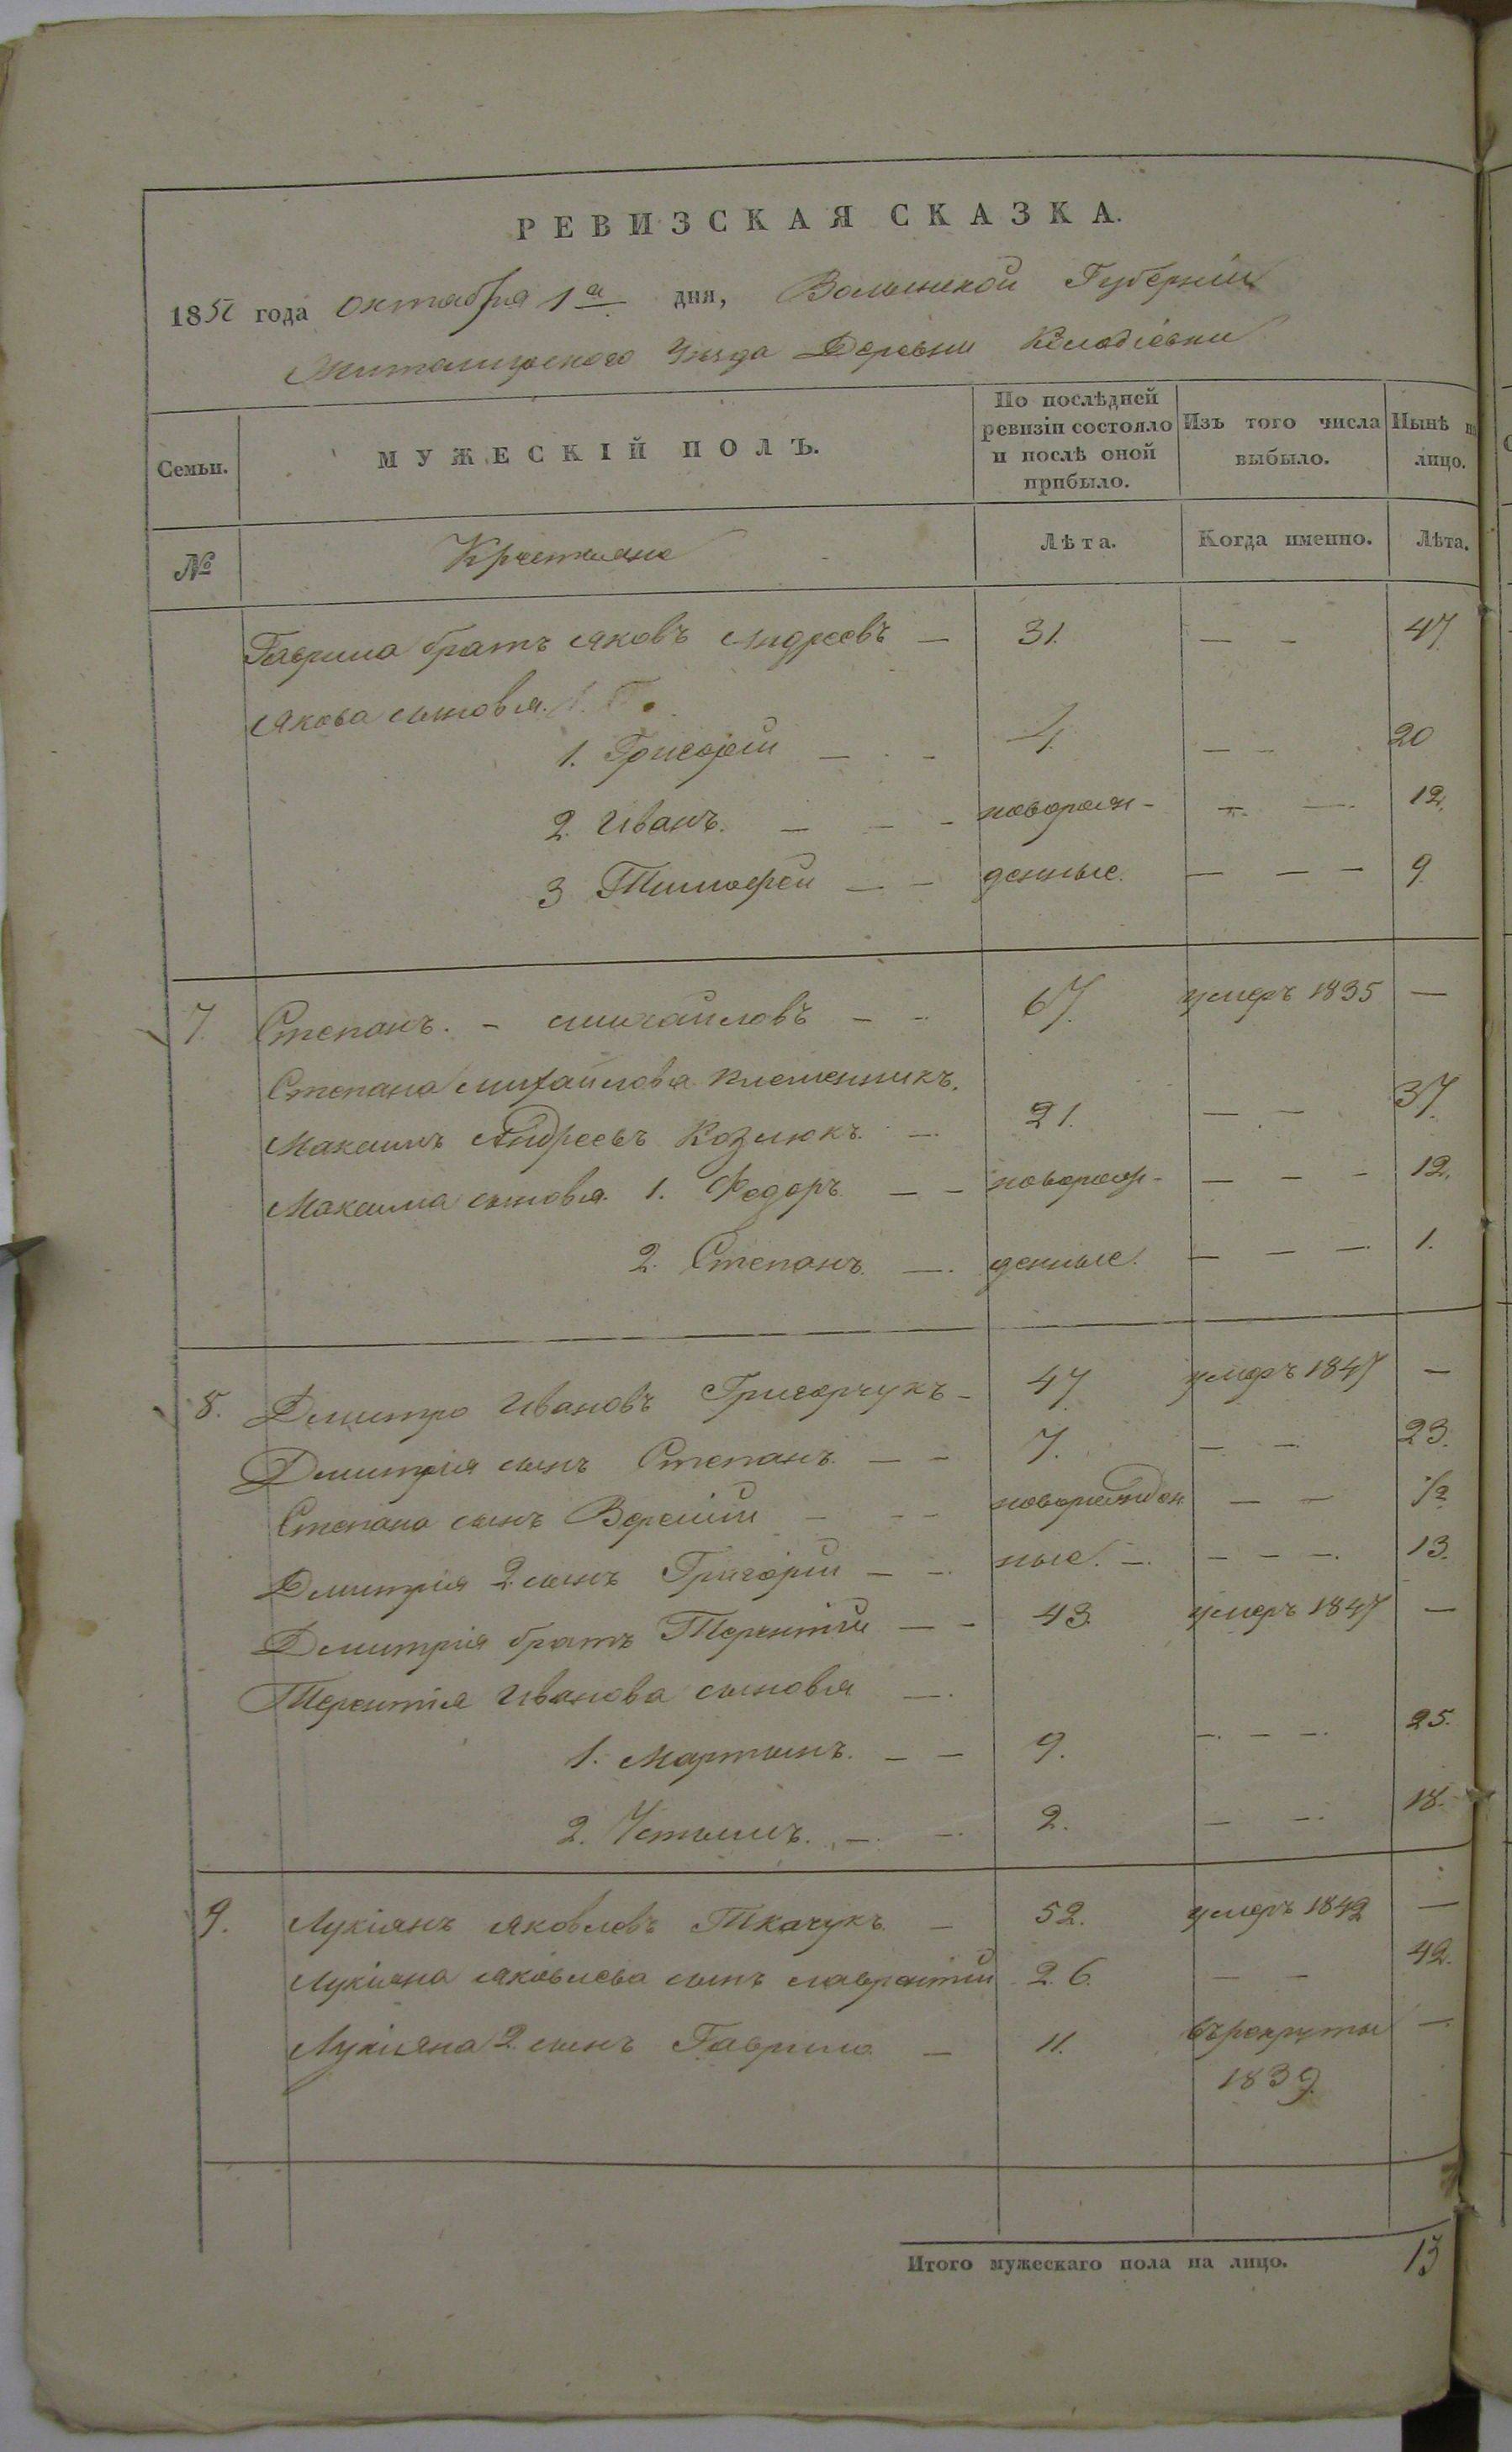 РЕВИЗСКАЯ СКАЗКА.
1850 года октября 1го дня, Волынской Губерніи
Житомирского Уѣзда Деревни Колодіевки
Семьи. МУЖЕСКІЙ ПОЛЪ. По послѣдней ревизіи состояло и послѣ оной прибыло. Изъ того числа выбыло. Нынѣ на лицо.
№ Крестьяне Лѣта. Когда именно. Лѣта.
Гаврила братъ Яковъ Андреевъ — 31. — — 47.
Якова сыновья.
1. Григорій — - 4. — — 20
2. Иванъ. — — - новорож- — — 12.
3 Тимофей — — денные. — — — 9.
7. Степанъ. - Михайловъ — — 67. умеръ 1835 —
Степана Михайлова племенникъ.
Максимъ Андреевъ Козлюкъ. — 21. — — 37.
Максима сыновья. 1. Федоръ — — новорож- — — — 12.
2. Степанъ. — денные. — — — 1.
8. Дмитро Ивановъ Григорчукъ — 47. умеръ 1847 —
Дмитрія сынъ Степанъ. — — 7. — — 23.
Степана сынъ — — — новорожден — — 1/2
Дмитрія 2 сынъ Григорій — — ные. — — — — 13.
Дмитрія братъ Терентій — — 43. умеръ 1847 —
Терентія Иванова сыновья —
1. Мартынъ. — — 9. — — — 25.
2. Устимъ. — — 2. — — 18.
9. Лукіянъ Яковлевъ Ткачукъ. — 52. умеръ 1842 —
Лукіяна Яковлева сынъ Лаврентій 26. — — 42.
Лукіяна 2 сынъ Гаврило. — 11. въ рекруты —
1839.
Итого мужескаго пола на лицо. 13